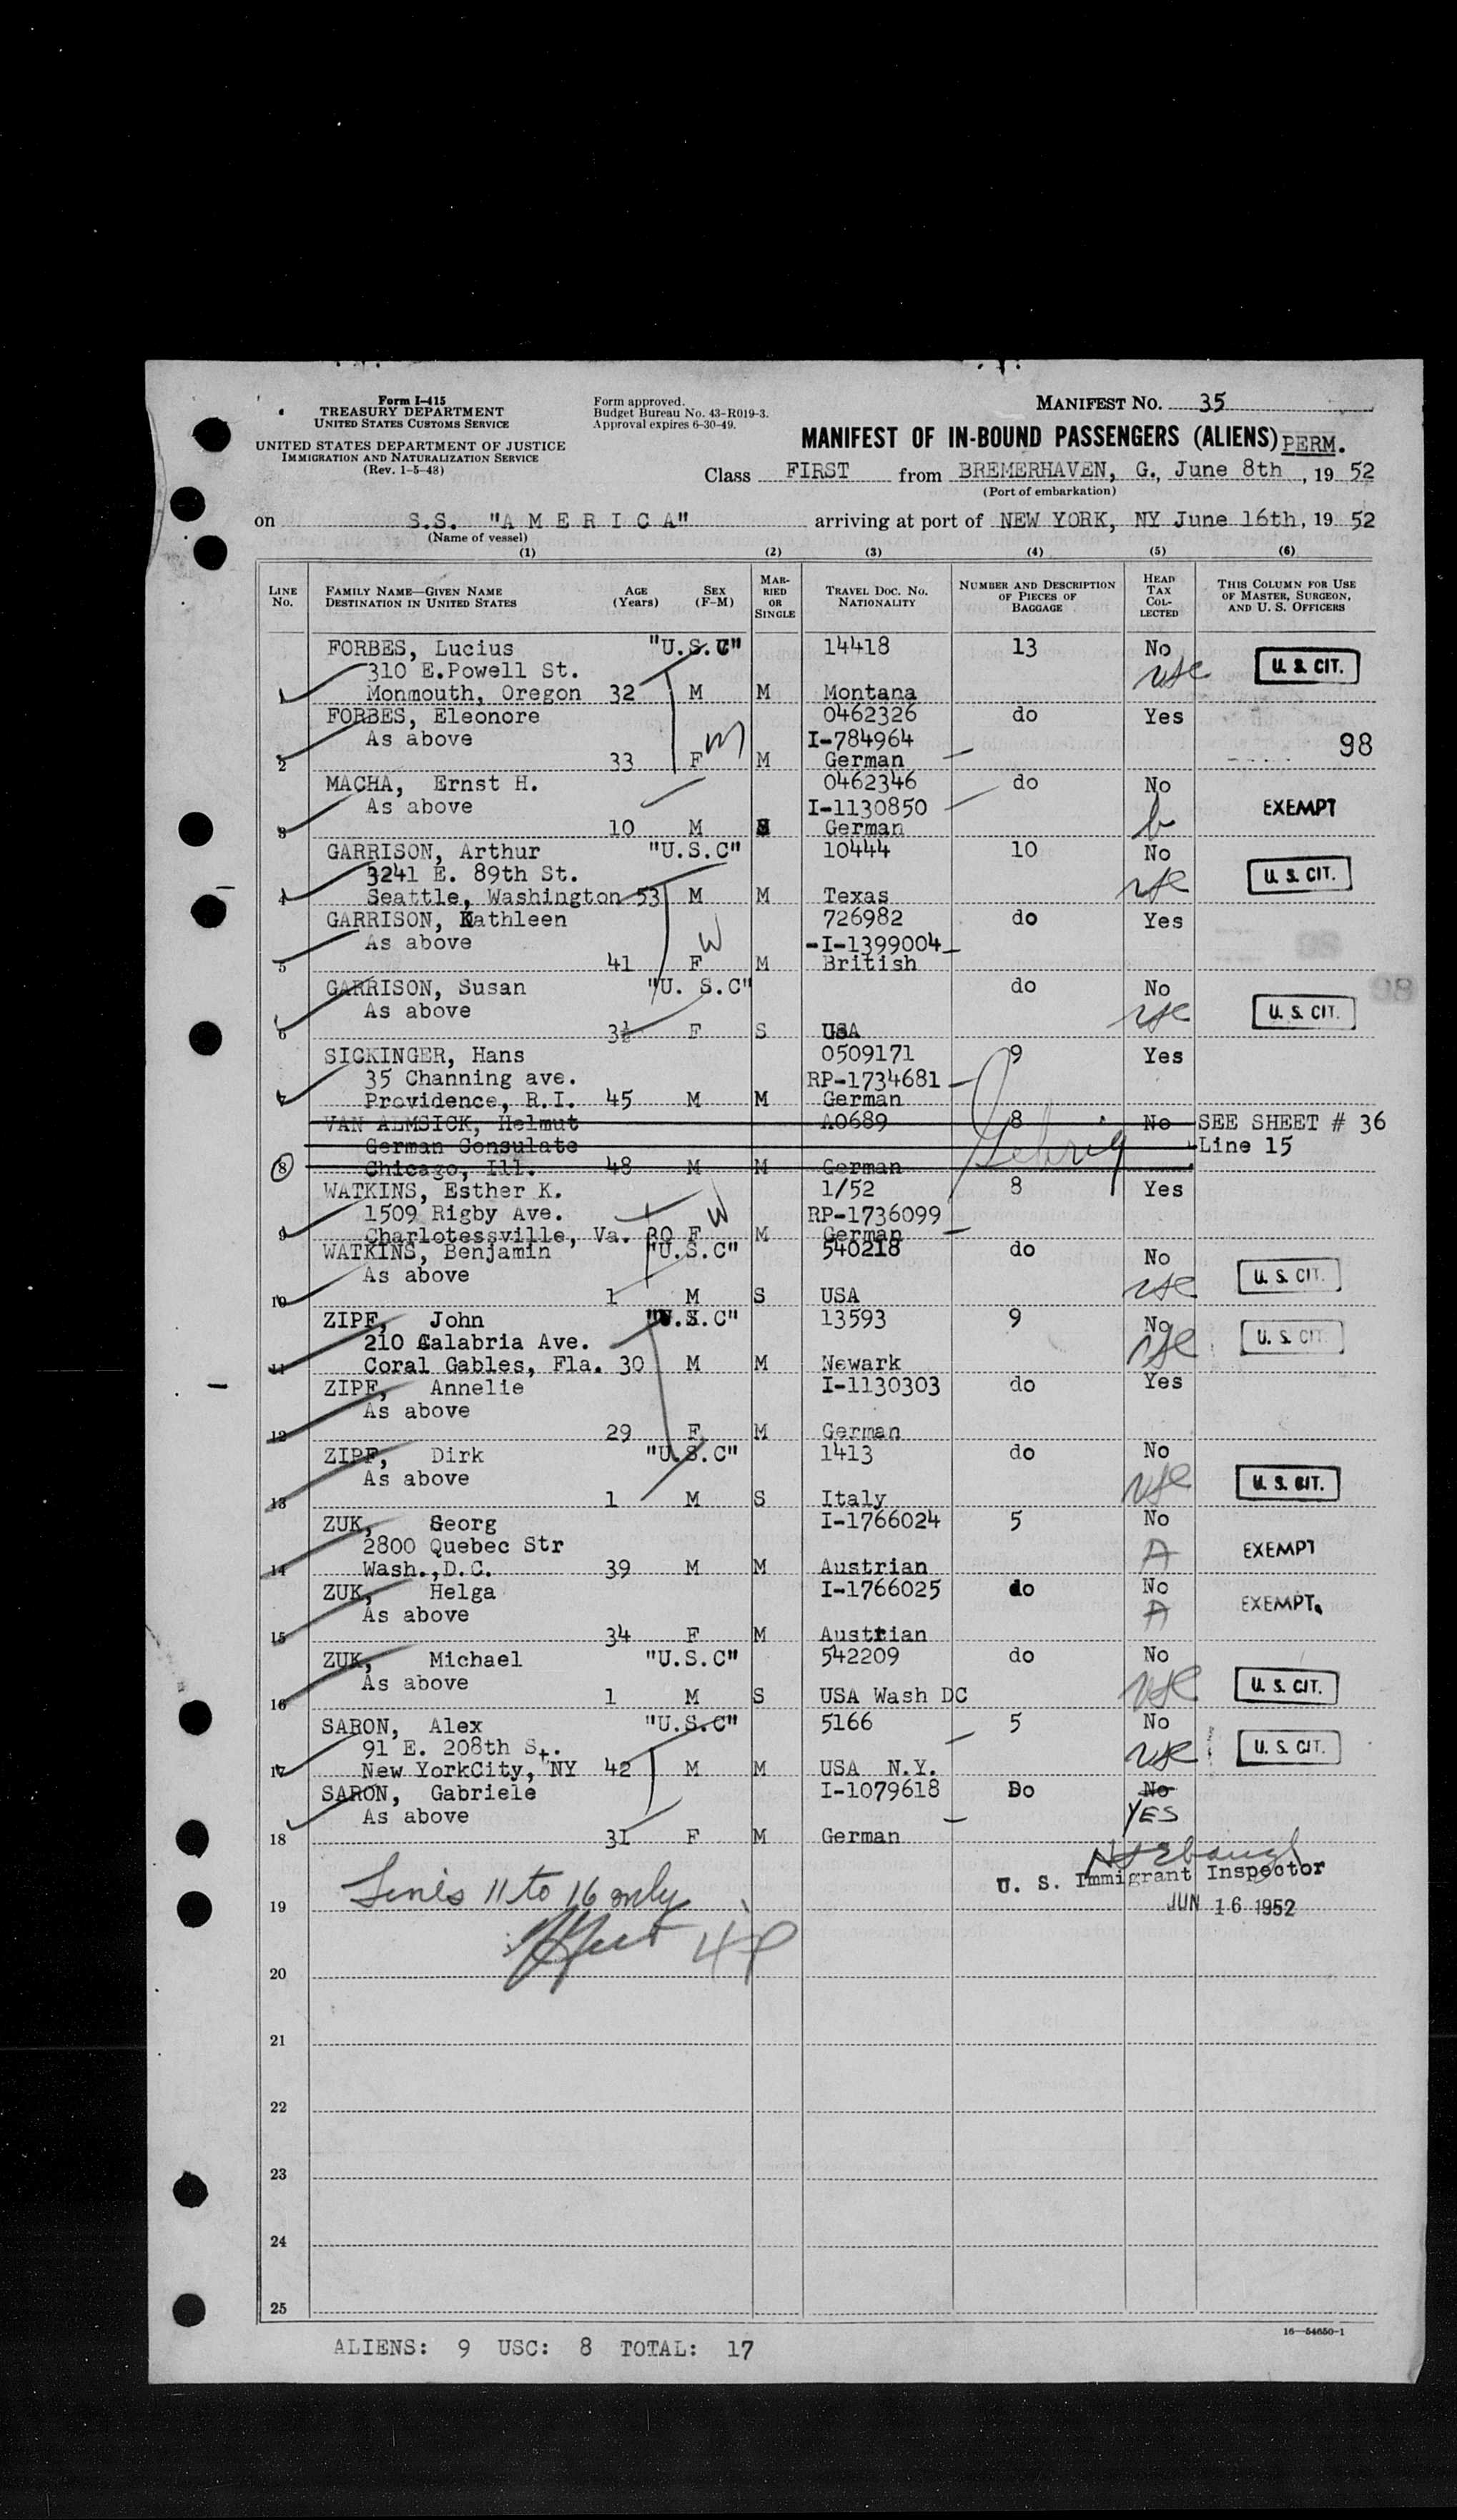 Form I-415
TREASURY DEPARTMENT
UNITED STATES CUSTOMS SERVICE
UNITED STATES DEPARTMENT OF JUSTICE
IMMIGRATION AND NATURALIZATION SERVICE
(Rev. 1-5-48)
Form approved.
Budget Bureau No. 43-R019-3.
Approval expires 6-30-49.
MANIFEST NO. 35
MANIFEST OF IN-BOUND PASSENGERS (ALIENS) PERM.
Class FIRST from BREMERHAVEN, G., June 8th, 19 52
(Port of embarkation)
on S.S. "A M E R I C A" arriving at port of NEW YORK, NY June 16th, 19 52
(Name of vessel)
(1) (2) (3) (4) (5) (6)
LINE No. FAMILY NAME—GIVEN NAME DESTINATION IN UNITED STATES AGE (Years) SEX (F-M) MARRIED OR SINGLE TRAVEL DOC. NO. NATIONALITY NUMBER AND DESCRIPTION OF PIECES OF BAGGAGE HEAD TAX COLLECTED THIS COLUMN FOR USE OF MASTER, SURGEON, AND U. S. OFFICERS
FORBES, Lucius "U.S.C" 14418 13 No
310 E.Powell St. usc U. S. CIT.
1 Monmouth, Oregon 32 M M Montana
FORBES, Eleonore 0462326 do Yes
As above M I-784964 98
2 33 F M German
MACHA, Ernst H. 0462346 do No
As above I-1130850 EXEMPT
3 10 M S German b
GARRISON, Arthur "U.S.C" 10444 10 No
3241 E. 89th St. U. S. CIT.
4 Seattle, Washington 53 M M Texas usc
GARRISON, Kathleen 726982 do Yes
As above W -I-1399004-
5 41 F M British
GARRISON, Susan "U. S.C" do No
As above usc U. S. CIT.
6 3½ F S USA
SICKINGER, Hans 0509171 9 Yes
35 Channing ave. RP-1734681
7 Providence, R.I. 45 M M German
VAN ALMSICK, Helmut A0689 8 No SEE SHEET # 36
German Consulate Line 15
8 Chicago, Ill. 48 M M German
WATKINS, Esther K. 1/52 8 Yes
1509 Rigby Ave. W RP-1736099
9 Charlotessville, Va. 30 F M German
WATKINS, Benjamin "U.S.C" 540218 do No
As above usc U. S. CIT.
10 1 M S USA
ZIPF, John "U.S.C" 13593 9 No
210 Calabria Ave. usc U. S. CIT.
11 Coral Gables, Fla. 30 M M Newark
ZIPF, Annelie I-1130303 do Yes
As above
12 29 F M German
ZIPF, Dirk "U.S.C" 1413 do No
As above usc U. S. CIT.
13 1 M S Italy
ZUK, Georg I-1766024 5 No
2800 Quebec Str A EXEMPT
14 Wash.,D.C. 39 M M Austrian
ZUK, Helga I-1766025 do No
As above A EXEMPT.
15 34 F M Austrian
ZUK, Michael "U.S.C" 542209 do No
As above usc U. S. CIT.
16 1 M S USA Wash DC
SARON, Alex "U.S.C" 5166 5 No
91 E. 208th St. usc U. S. CIT.
17 New YorkCity, NY 42 M M USA N.Y.
SARON, Gabriele I-1079618 Do No
As above YES
18 31 F M German
U. S. Immigrant Inspector
JUN 16 1952
Lines 11 to 16 only
19
20
21
22
23
24
25
16—54650-1
ALIENS: 9 USC: 8 TOTAL: 17